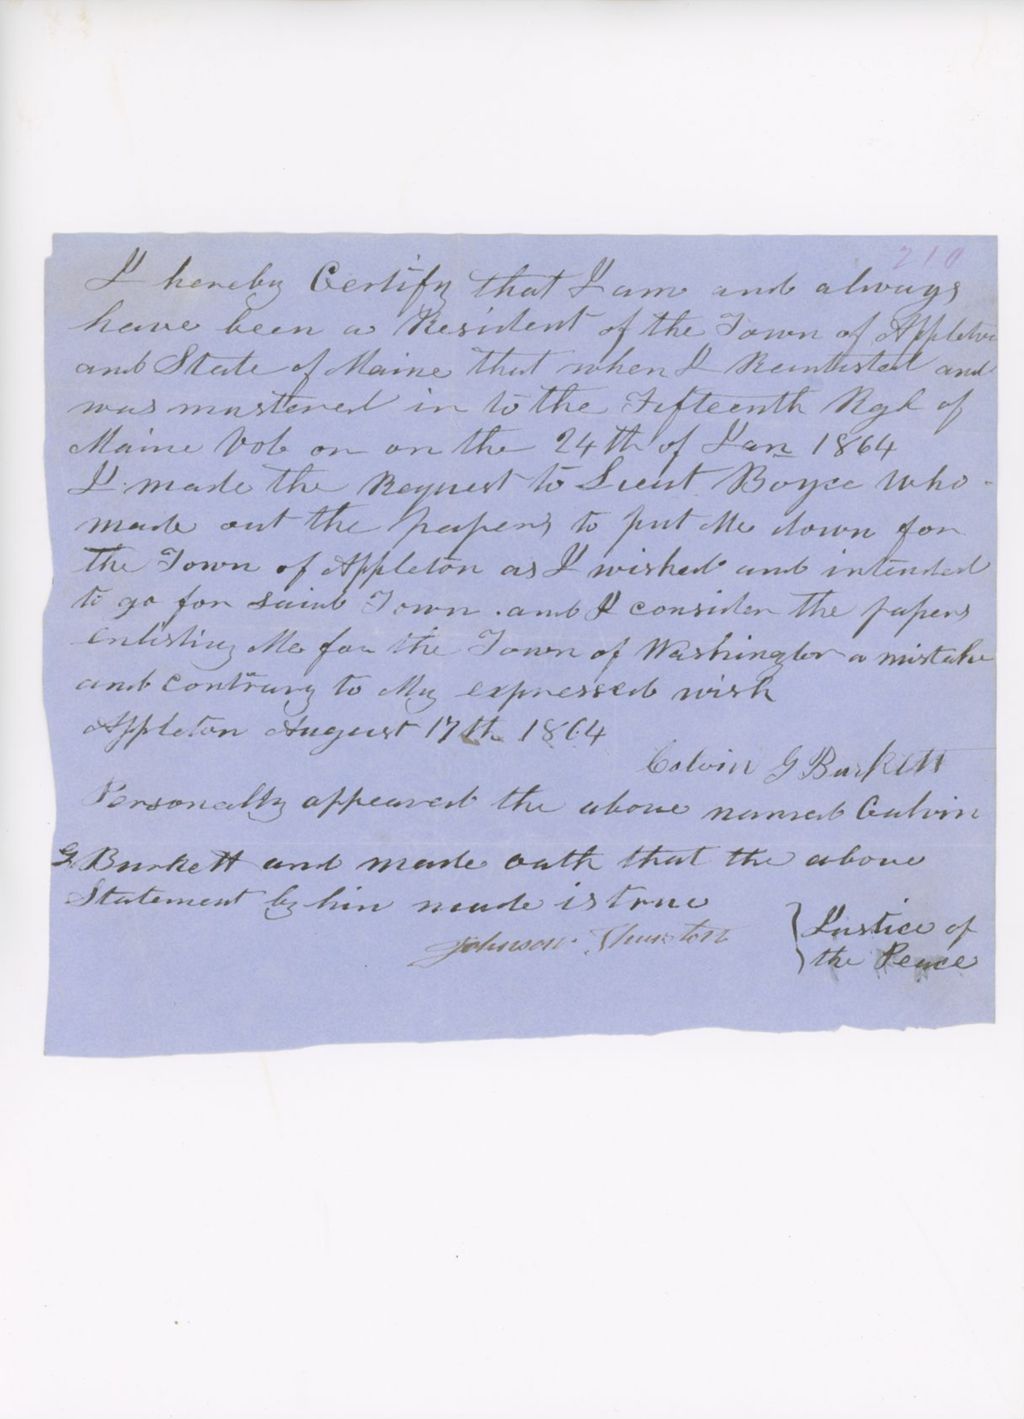 210
I hereby Certify that I am and always
have been a Resident of the Town of Appleton
and State of Maine that when I Reenlisted and
was mustered in to the Fifteenth Rgt of
Maine Vols on on the 24th of Jan 1864
I made the Request to Lieut Boyce who
made out the papers to put Me down for
the Town of Appleton as I wished and intended
to go for said Town . and I consider the papers
enlisting Me for the Town of Washington a mistake
and contrary to My expressed wish
Appleton August 17th 1864
Calvin G Burkett
Personally appeared the above named Calvin
G. Burkett and made oath that the above
Statement by him made is true
Johnson Thurston } Justice of
the Peace